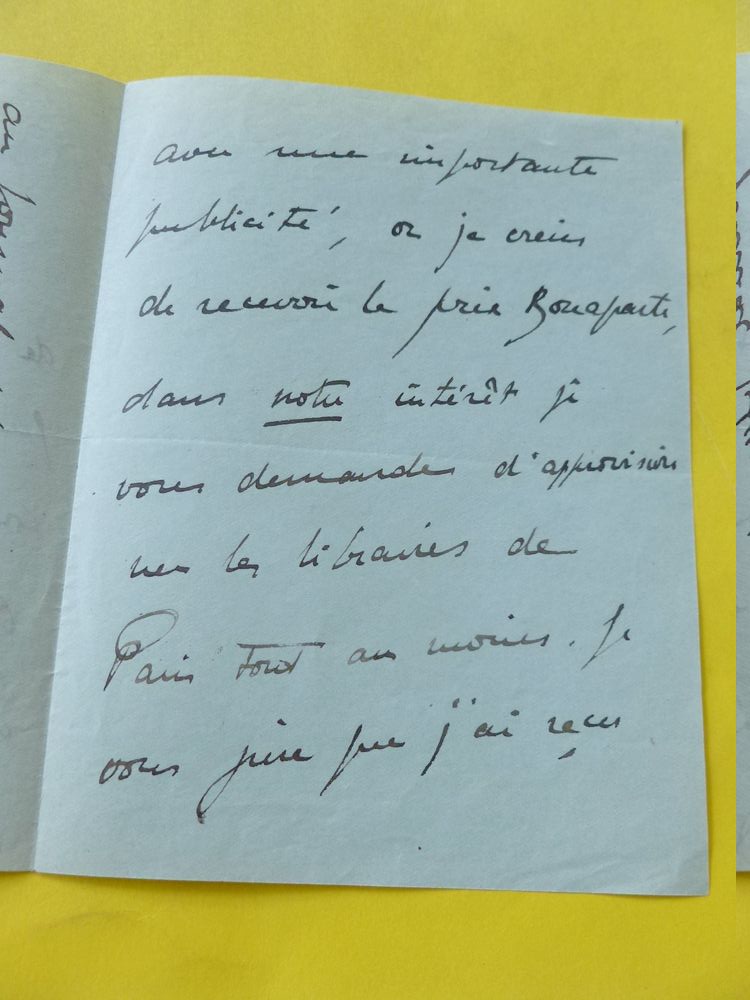 avec une importante
publicité, or je crains
de recevoir le prix Bonaparte,
dans notre intérêt je
vous demandes d'approvision
ner les libraires de
Paris tout au moins. Je
vous jure que j'ai reçu
au journal
de